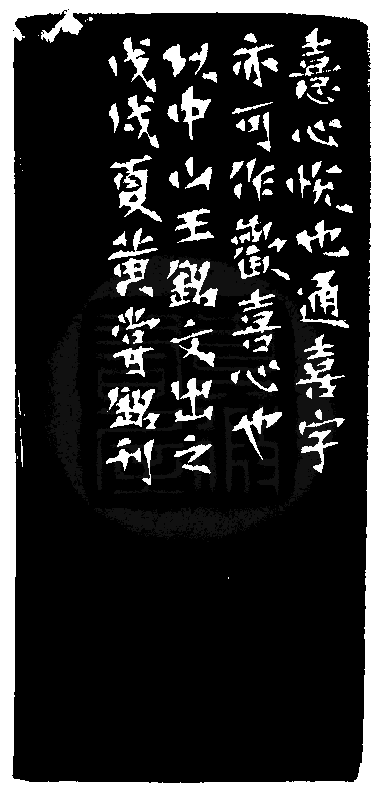 憙心悅也通喜字
亦可作歡喜心也
以中山王銘文出之
戊戌夏黃嘗銘刊